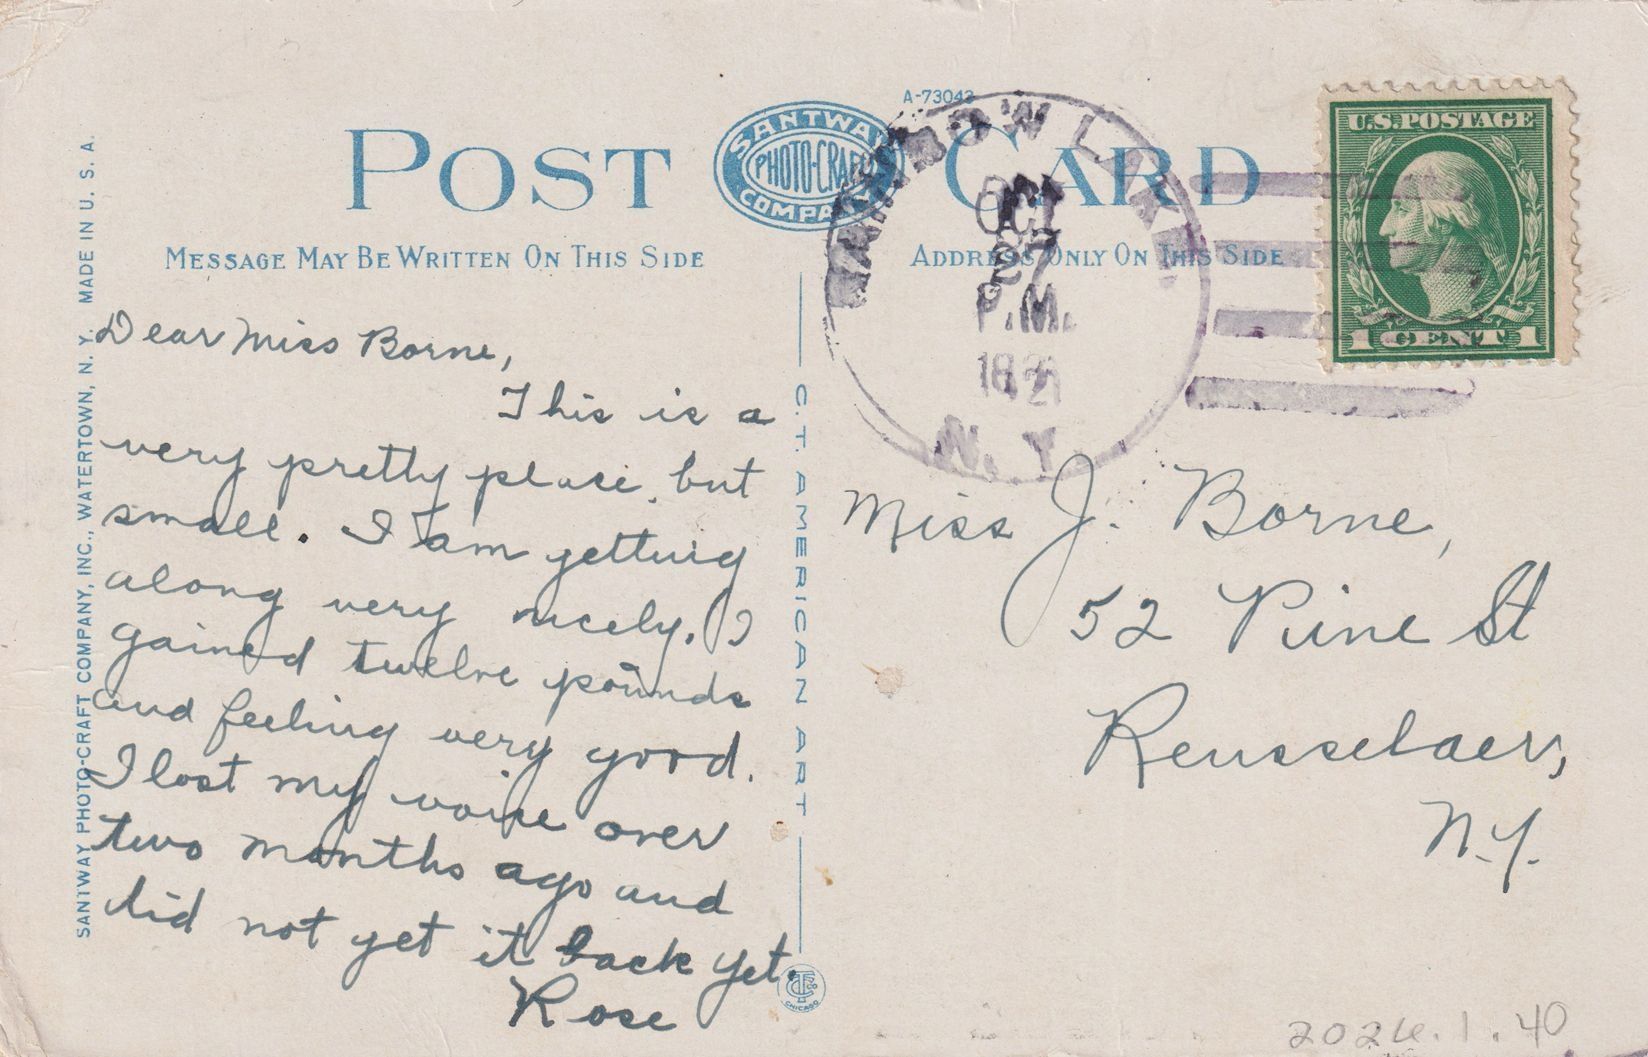 A-73043
POST CARD
SANTWAY
PHOTO-CRAFT
COMPANY
MESSAGE MAY BE WRITTEN ON THIS SIDE
ADDRESS ONLY ON THIS SIDE
LAKE
OCT
P.M.
N.Y.
U.S.POSTAGE
1 CENT 1
SANTWAY PHOTO-CRAFT COMPANY, INC., WATERTOWN, N. Y. MADE IN U. S. A.
Dear Miss Borne,
This is a
very pretty place, but
small. I am getting
along very nicely. I
gained twelve pounds
and feeling very good.
I lost my voice over
two months ago and
did not get it back yet.
Rose
C. T. AMERICAN ART
CHICAGO
Miss J. Borne,
52 Pine St
Rensselaer,
N.Y.
2024.1.40